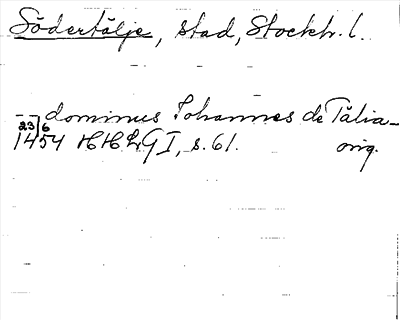 Södertälje, stad, Stockh. l.
— dominus Johannes de Tälia —
23/6
1454 HHLG I, s. 61. orig.